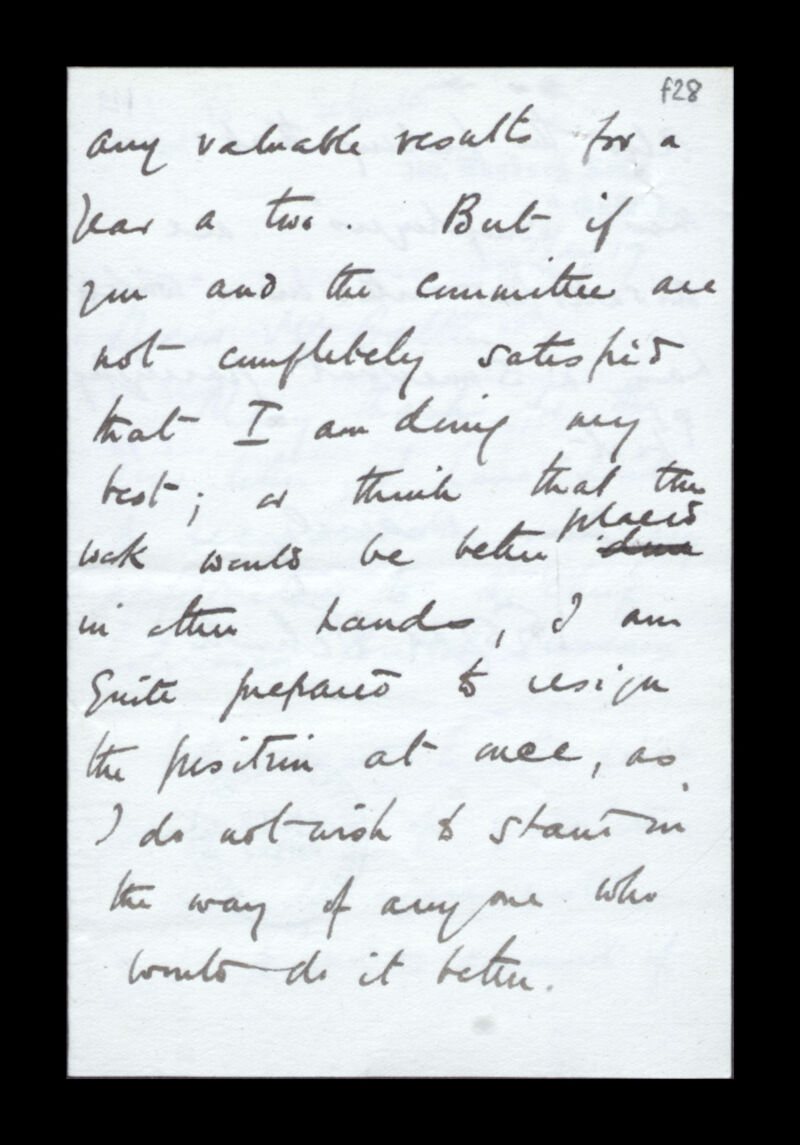 f28
any valuable results for a
year or two. But if
you and the committee are
not completely satisfied
that I am doing my
best; or think that the
placed
work would be better done
in other hands, I am
quite prepared to resign
the position at once, as
I do not wish to stand in
the way of any one who
would do it better.